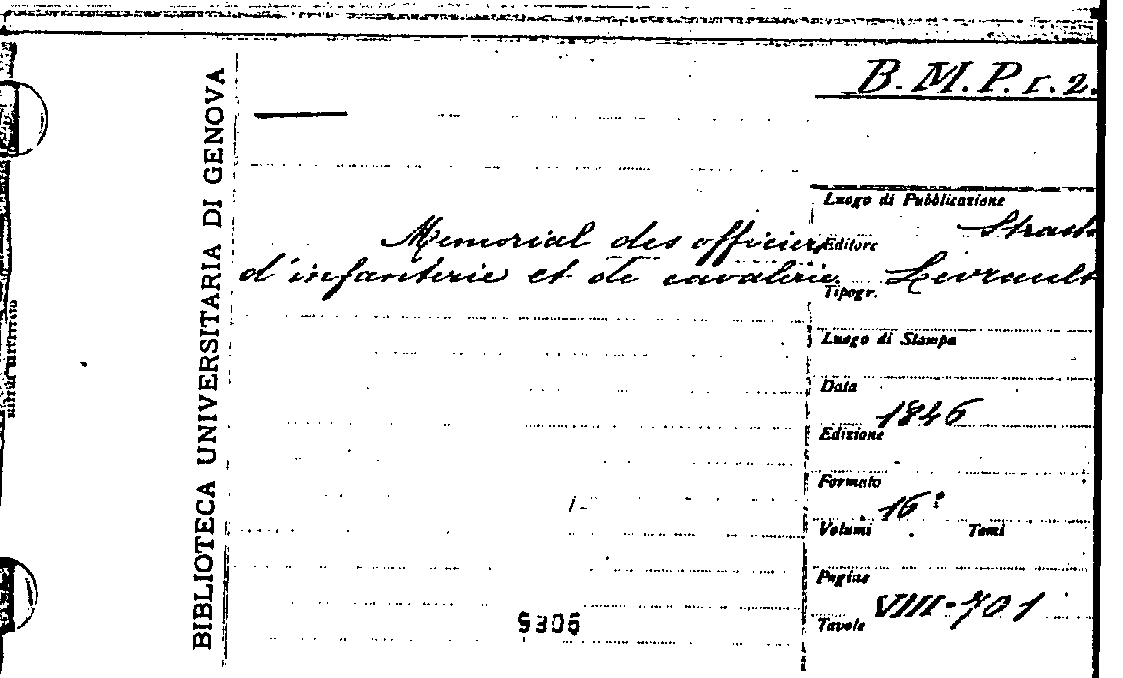 B.M.P. r. 2.
BIBLIOTECA UNIVERSITARIA DI GENOVA
Memorial des officiers
d'infanterie et de cavalerie.
Luogo di Pubblicazione
Strasb
Editore
Levrault
Tipogr.
Luogo di Stampa
Data
1846
Edizione
Formato
16º
Volumi Tomi
Pagine
VIII-701
Tavole